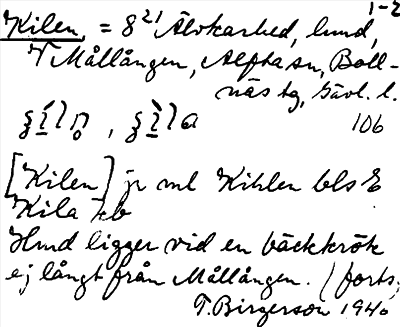 1-2
Kilen, = 8²¹ Älvkarhed, hmd,
T Mållången, Alfta sn, Boll-
näs tg, Gävl. l.
106
[Kilen] jr ml Kihlen bls E
Kila kb
Hmd ligger vid en bäckkrök
ej långt från Mållången. (forts.
T. Birgerson 1940